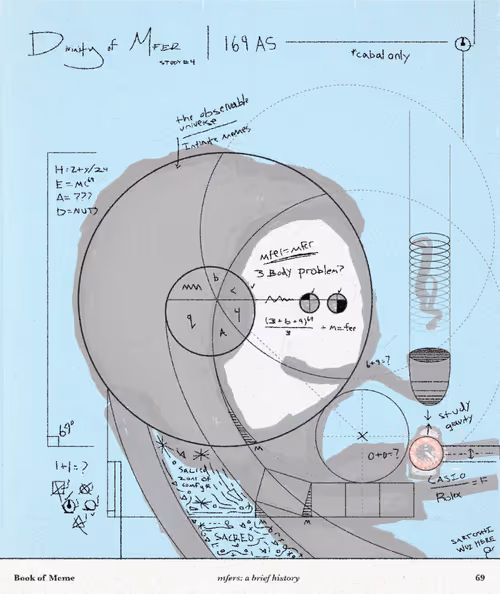 Divinity of Mfer
STUDY #4
169 AS
*cabal only
the observable
universe
Infinite memes
H=2+y/24
E=MC⁶⁹
Δ=???
D=NUTS
mfer=mfer
3 Body problem?
b
c
q
4
A
+ M=fer
6+9=?
study
gravity
69°
0+0=?
1+1=?
M
CASIO
Rolex
=F
SACRED
zone of
M
M
SACRED
SARTOSHI
WUZ HERE
Book of Meme
mfers: a brief history
69